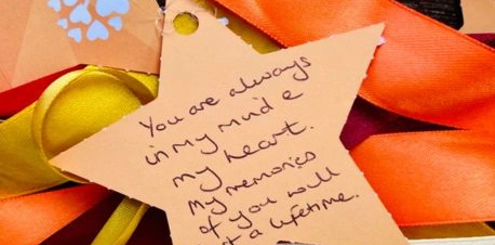 You are always
in my mind &
my heart.
My memories
of you will
last a lifetime.